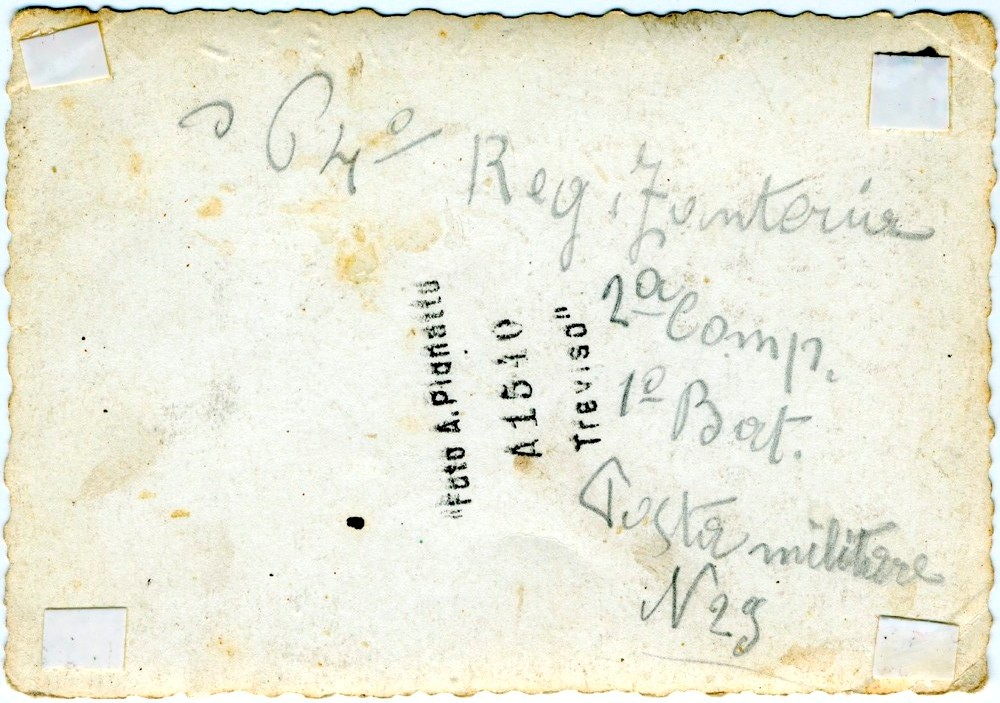 Reg. Fanteria
2ª Comp.
1º Bat.
Posta militare
N 29
"Foto A. Pianatto
A1540
Treviso"